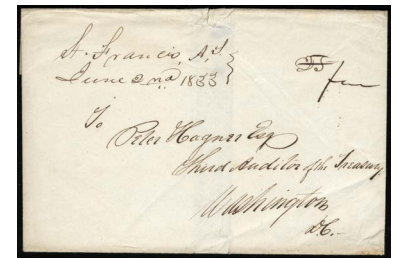 St. Francis, A.T.
June 2nd. 1833
25
To
Peter Hagner Esq
Third Auditor of the Treasury,
Washington
D.C.